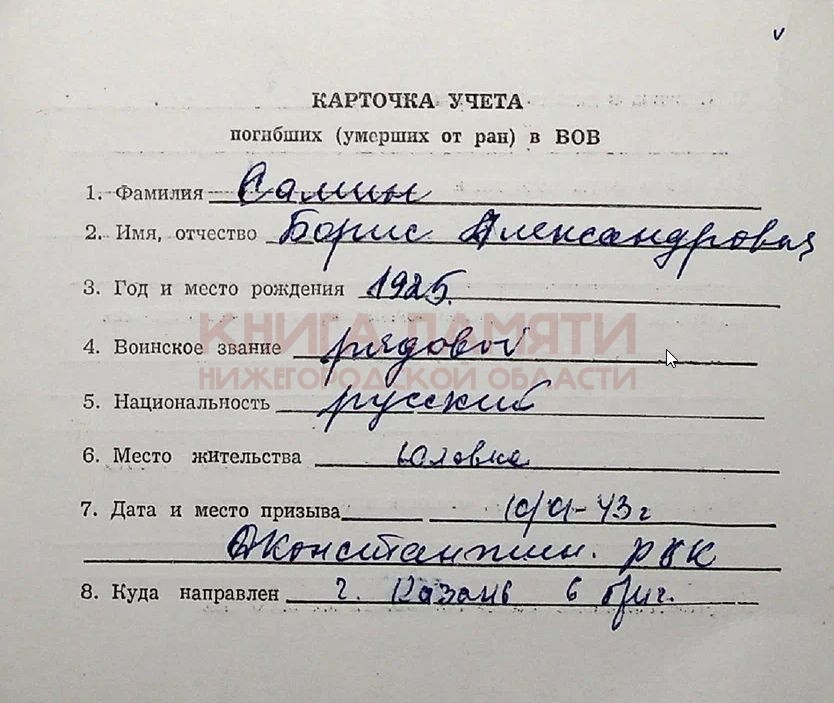 КАРТОЧКА УЧЕТА
погибших (умерших от ран) в ВОВ
1. Фамилия Самин
2. Имя, отчество Борис Александрович
3. Год и место рождения 1925.
КНИГА ПАМЯТИ
4. Воинское звание рядовой
НИЖЕГОРОДСКОЙ ОБЛАСТИ
5. Национальность русский
6. Место жительства
7. Дата и место призыва 43 г
Дконстантин. РВК
8. Куда направлен г. Казань 6 бриг.